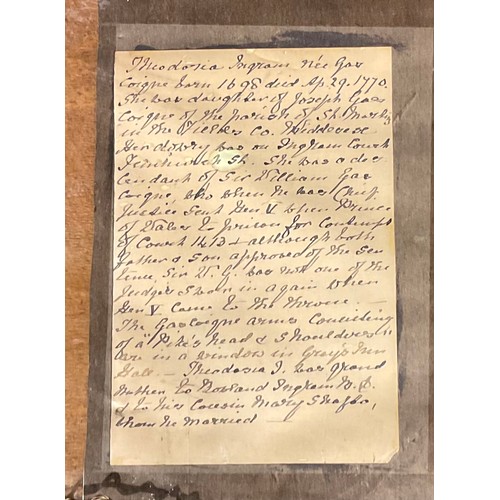 Theodosia Ingram née Gas
coigne born 1698 died Ap. 29. 1770.
She was daughter of Joseph Gas
coigne of the parish of St. Martin
in the Fields Co. Middlesex
Her dowry was on Ingram Court
Fenchurch St. She was a des
cendant of Sir William Gas
coigne, who when he was Chief
Justice sent Hen V when Prince
of Wales to prison for Contempt
of Court 1413 & although both
Father & Son approved of the Sen
tence, Sir W. G. was not one of the
Judges Sworn in again when
Hen V came to the throne. —
The Gascoigne arms Consisting
of a "Pike's head & Shoulders"
are in a window in Gray's Inn
Hall. — Theodosia I. was grand
mother to Rowland Ingram B. D.
& to his Cousin Mary
whom he married —